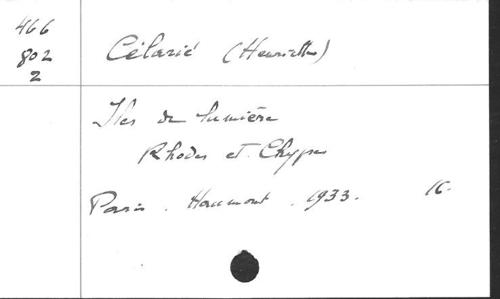 466
802
2
Célarié (Henriette)
Iles de lumière
Rhodes et Chypre
Paris. Haumont. 1933. 16.